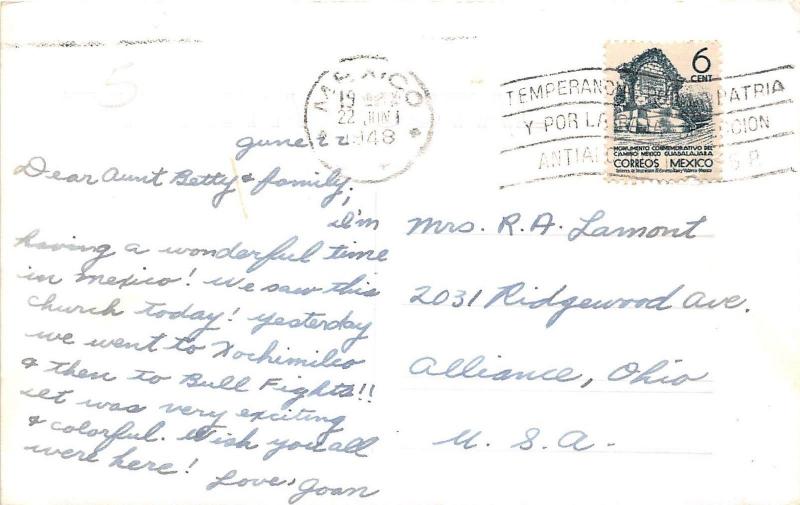 MEXICO
19
22 JUN
1948
TEMPERANCIA PATRIA
Y POR LA
ANTIAL S.P.
6
CENT
MONUMENTO CONMEMORATIVO DEL
CAMINO MEXICO GUADALAJARA
CORREOS MEXICO
June 22
Dear Aunt Betty & family,
I'm
having a wonderful time
in Mexico! We saw this
church today! Yesterday
we went to Xochimilco
& then to Bull Fights!!
It was very exciting
& colorful. Wish you all
were here!
Love, Joan
Mrs. R. A. Lamont
2031 Ridgewood Ave.
Alliance, Ohio
U. S. A.